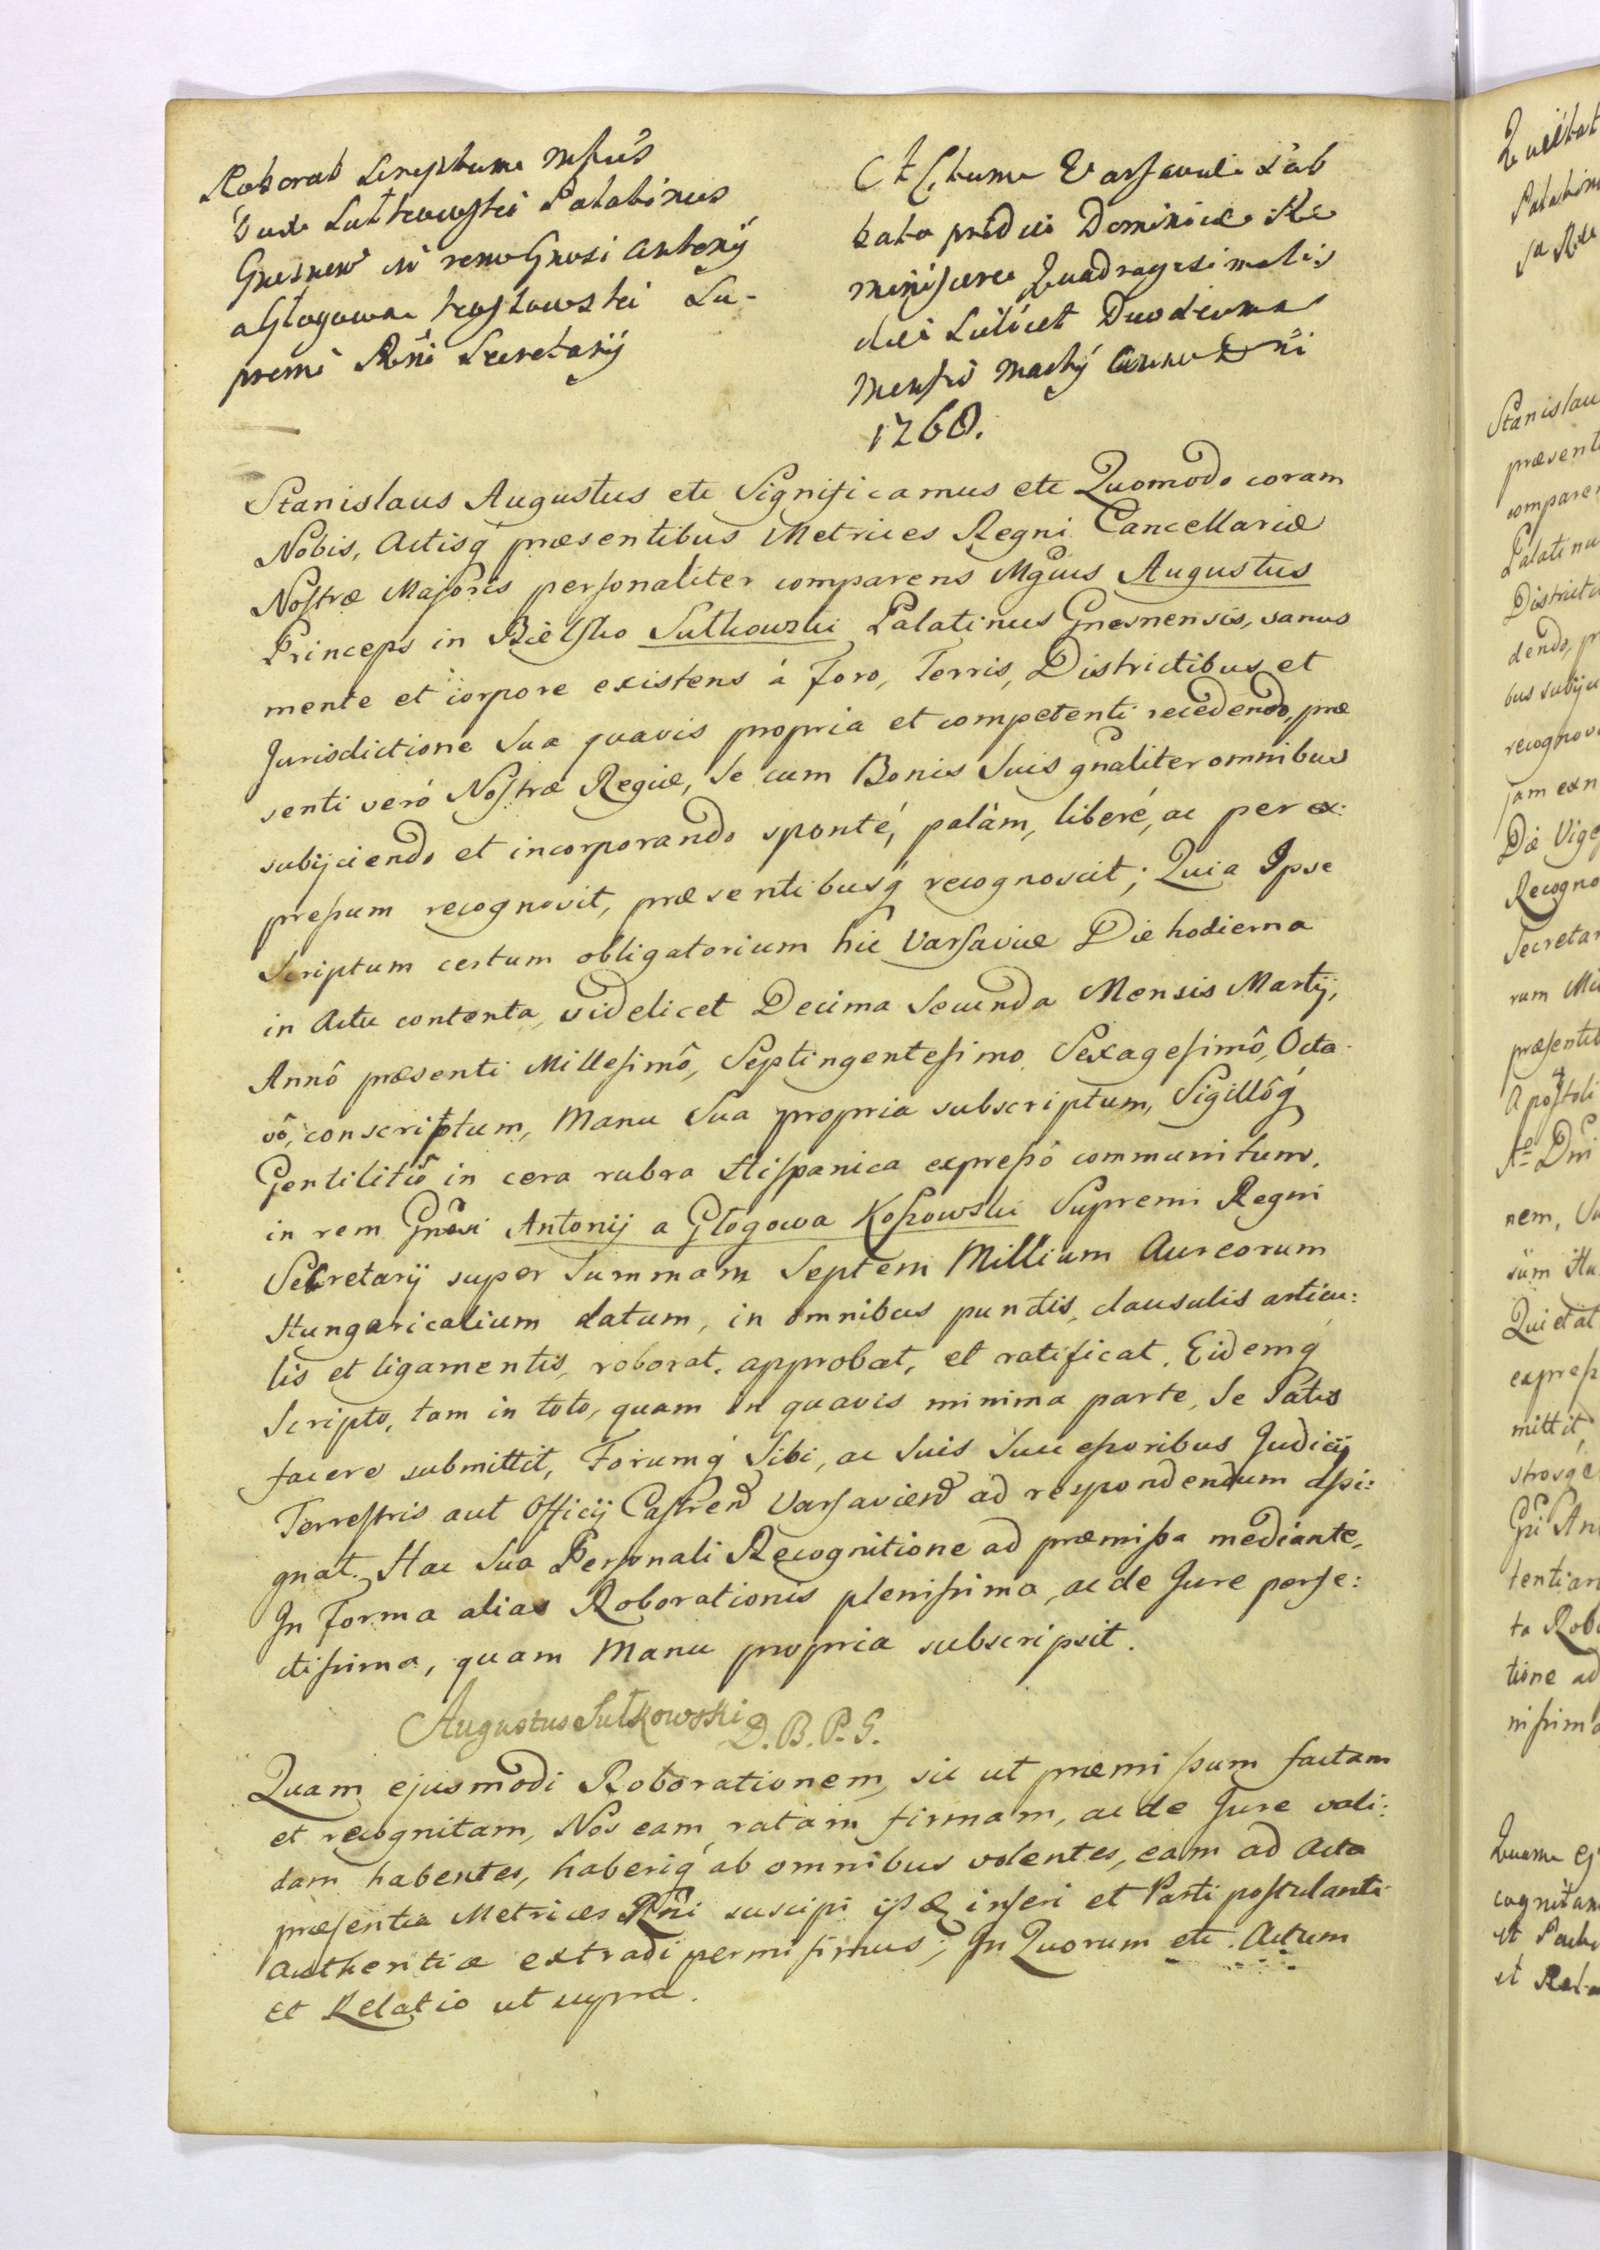 Roborat Scriptum Mgfcus
Dux Sułkowski Palatinus
Gnesnen in rem Gnosi Antonij
a Głogowa Kossowski Su-
premi Rñi Secretarij
Actum Varsaviæ Sab
bato pridie Dominicæ Re
miniscere Quadragesimalis
die Scilicet Duodecima
Mensis Martij Anno Dñi
1768.
Stanislaus Augustus etc Significamus etc Quomodo coram
Nobis, Actisq́ præsentibus Metrices Regni Cancellariæ
Nostræ Majoris personaliter comparens Mgcus Augustus
Princeps in Bielsko Sułkowski Palatinus Gnesnensis, sanus
mente et corpore existens á Foro, Terris, Districtibus et
Jurisdictione Sua quavis propria et competenti recedendo, præ
senti veró Nostræ Regiæ, Se cum Bonis Suis gnaliter omnibus
subijciendo et incorporando sponté, palàm, liberé, ac per ex:
pressum recognovit, præsentibusq́ recognoscit; Quia Ipse
Scriptum certum obligatorium hic Varsaviæ Die hodierna
in Actu contenta, videlicet Decima Secunda Mensis Martij,
Annô præsenti Millesimô, Septingentesimo Sexagesimô, Octa-
vô, conscriptum, Manu Sua propria subscriptum, Sigillôq́
Gentilitiô in cera rubra Hispanica expressô communitum,
in rem Gnosi Antonij a Głogowa Kossowski Supremi Regni
Secretarij super Summam Septem Millium Aureorum
Hungaricalium datum, in omnibus punctis, clausulis articu:
lis et ligamentis, roborat, approbat, et ratificat. Eidemq́
Scripto, tam in toto, quam in quavis minima parte, Se Satis
facere submittit, Forumq́ Sibi, ac Suis Successoribus Judicij
Terrestris aut Officij Castren Varsavien ad respondendum assi:
gnat. Hac Sua Personali Recognitione ad præmissa mediante,
In Forma alias Roborationis plenissima, ac de Jure perfe:
ctissima, quam Manu propria subscripsit.
Augustus Sułkowski D. B. P. G.
Quam ejusmodi Roborationem, sic ut præmissum factam
et recognitam, Nos eam, ratam firmam, ac de Jure vali:
dam habentes, haberiq́ ab omnibus volentes, eam ad Acta
præsentia Metrices Rñi suscipi ijsq inseri et Parti postulanti
authentice extradi permisimus; In Quorum etc. Actum
et Relatio ut supra.
Palatin
Stanislau
præsenti
comparen
Palatinu
District
dendo, pr
bus subijci
recognovi
jam ex n
Die Vige
Recogno
Secretar
rum Mi
præsentib
Apostoli
Dni
nem, Su
Quietat
express
mittit
tentiam
ta Robo
tione ad
nissima
Quam ej
cognitam
et Parti
et Rela